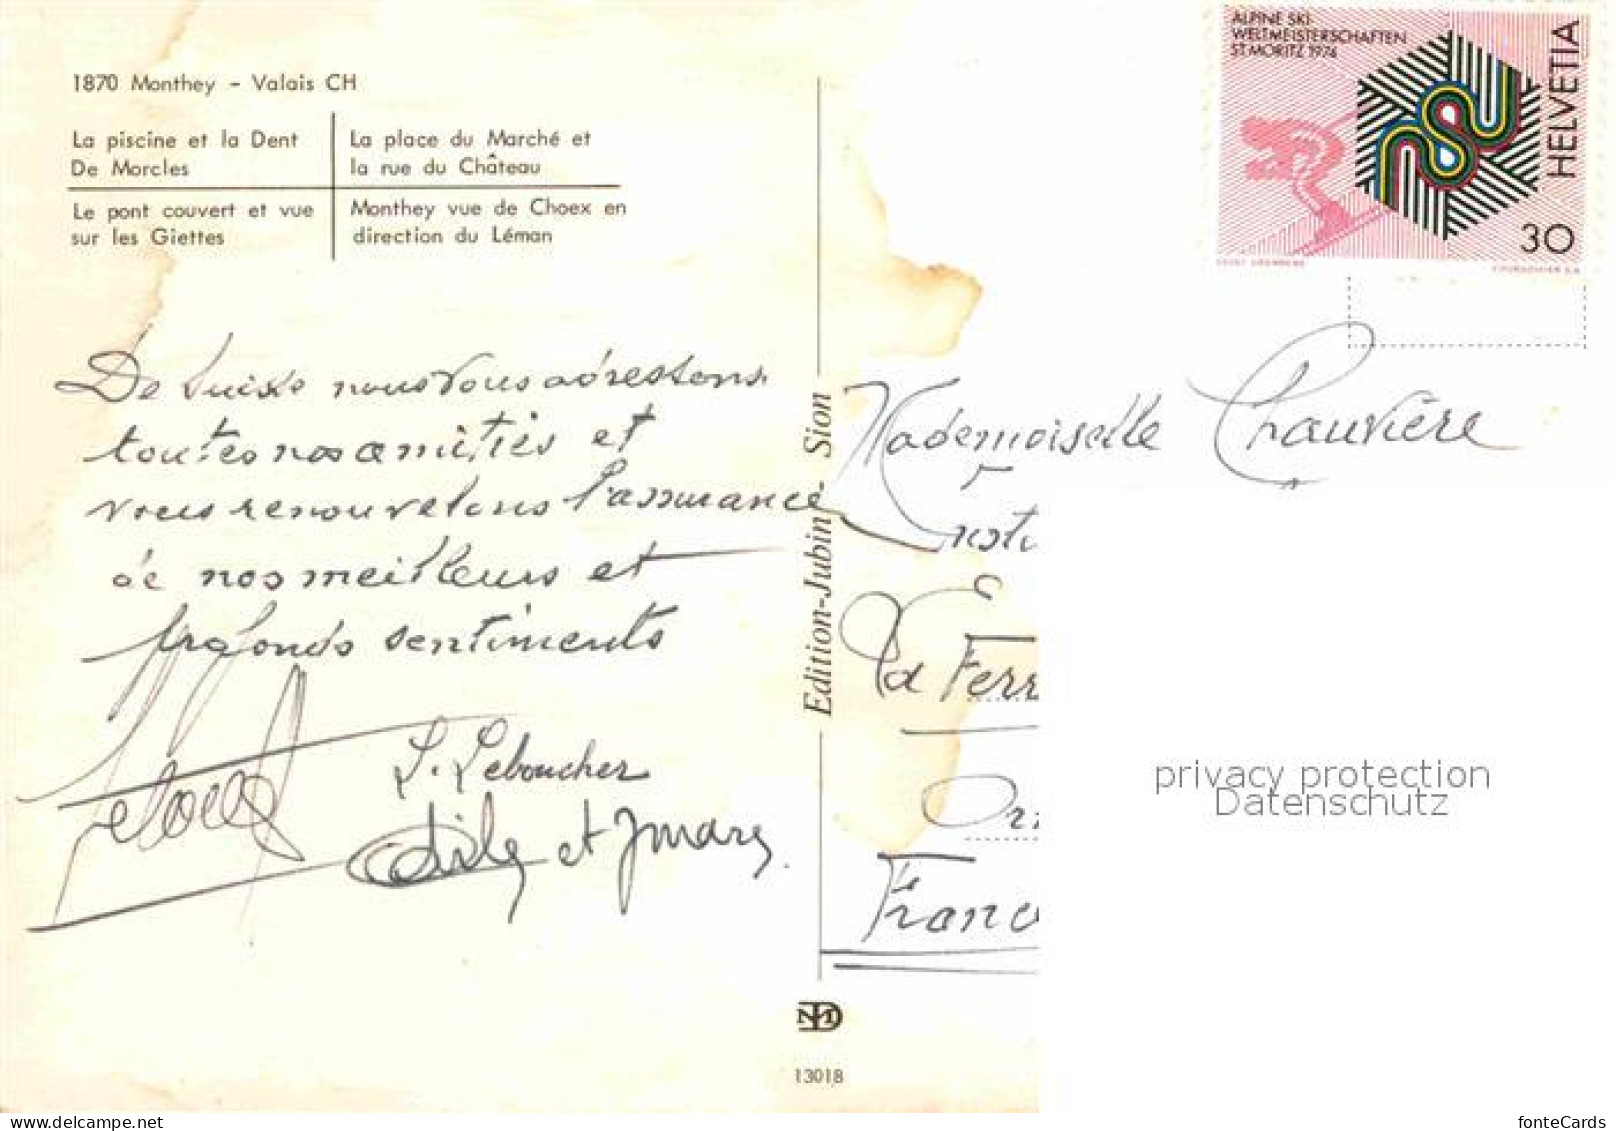 1870 Monthey - Valais CH
La piscine et la Dent
De Morcles
La place du Marché et
la rue du Château
Le pont couvert et vue
sur les Giettes
Monthey vue de Choex en
direction du Léman
De Suisse nous vous adressons
toutes nos amitiés et
vous renouvelons l'assurance
de nos meilleurs et
profonds sentiments
L. Leboucher
Odile et Jmarc.
Edition-Jubin - Sion
13018
ALPINE SKI-
WELTMEISTERSCHAFTEN
ST. MORITZ 1974
HELVETIA
30
COURVOISIER S.A.
Mademoiselle Chauvière
Insti
La Ferr
Orn
Franc
privacy protection
Datenschutz
fonteCards